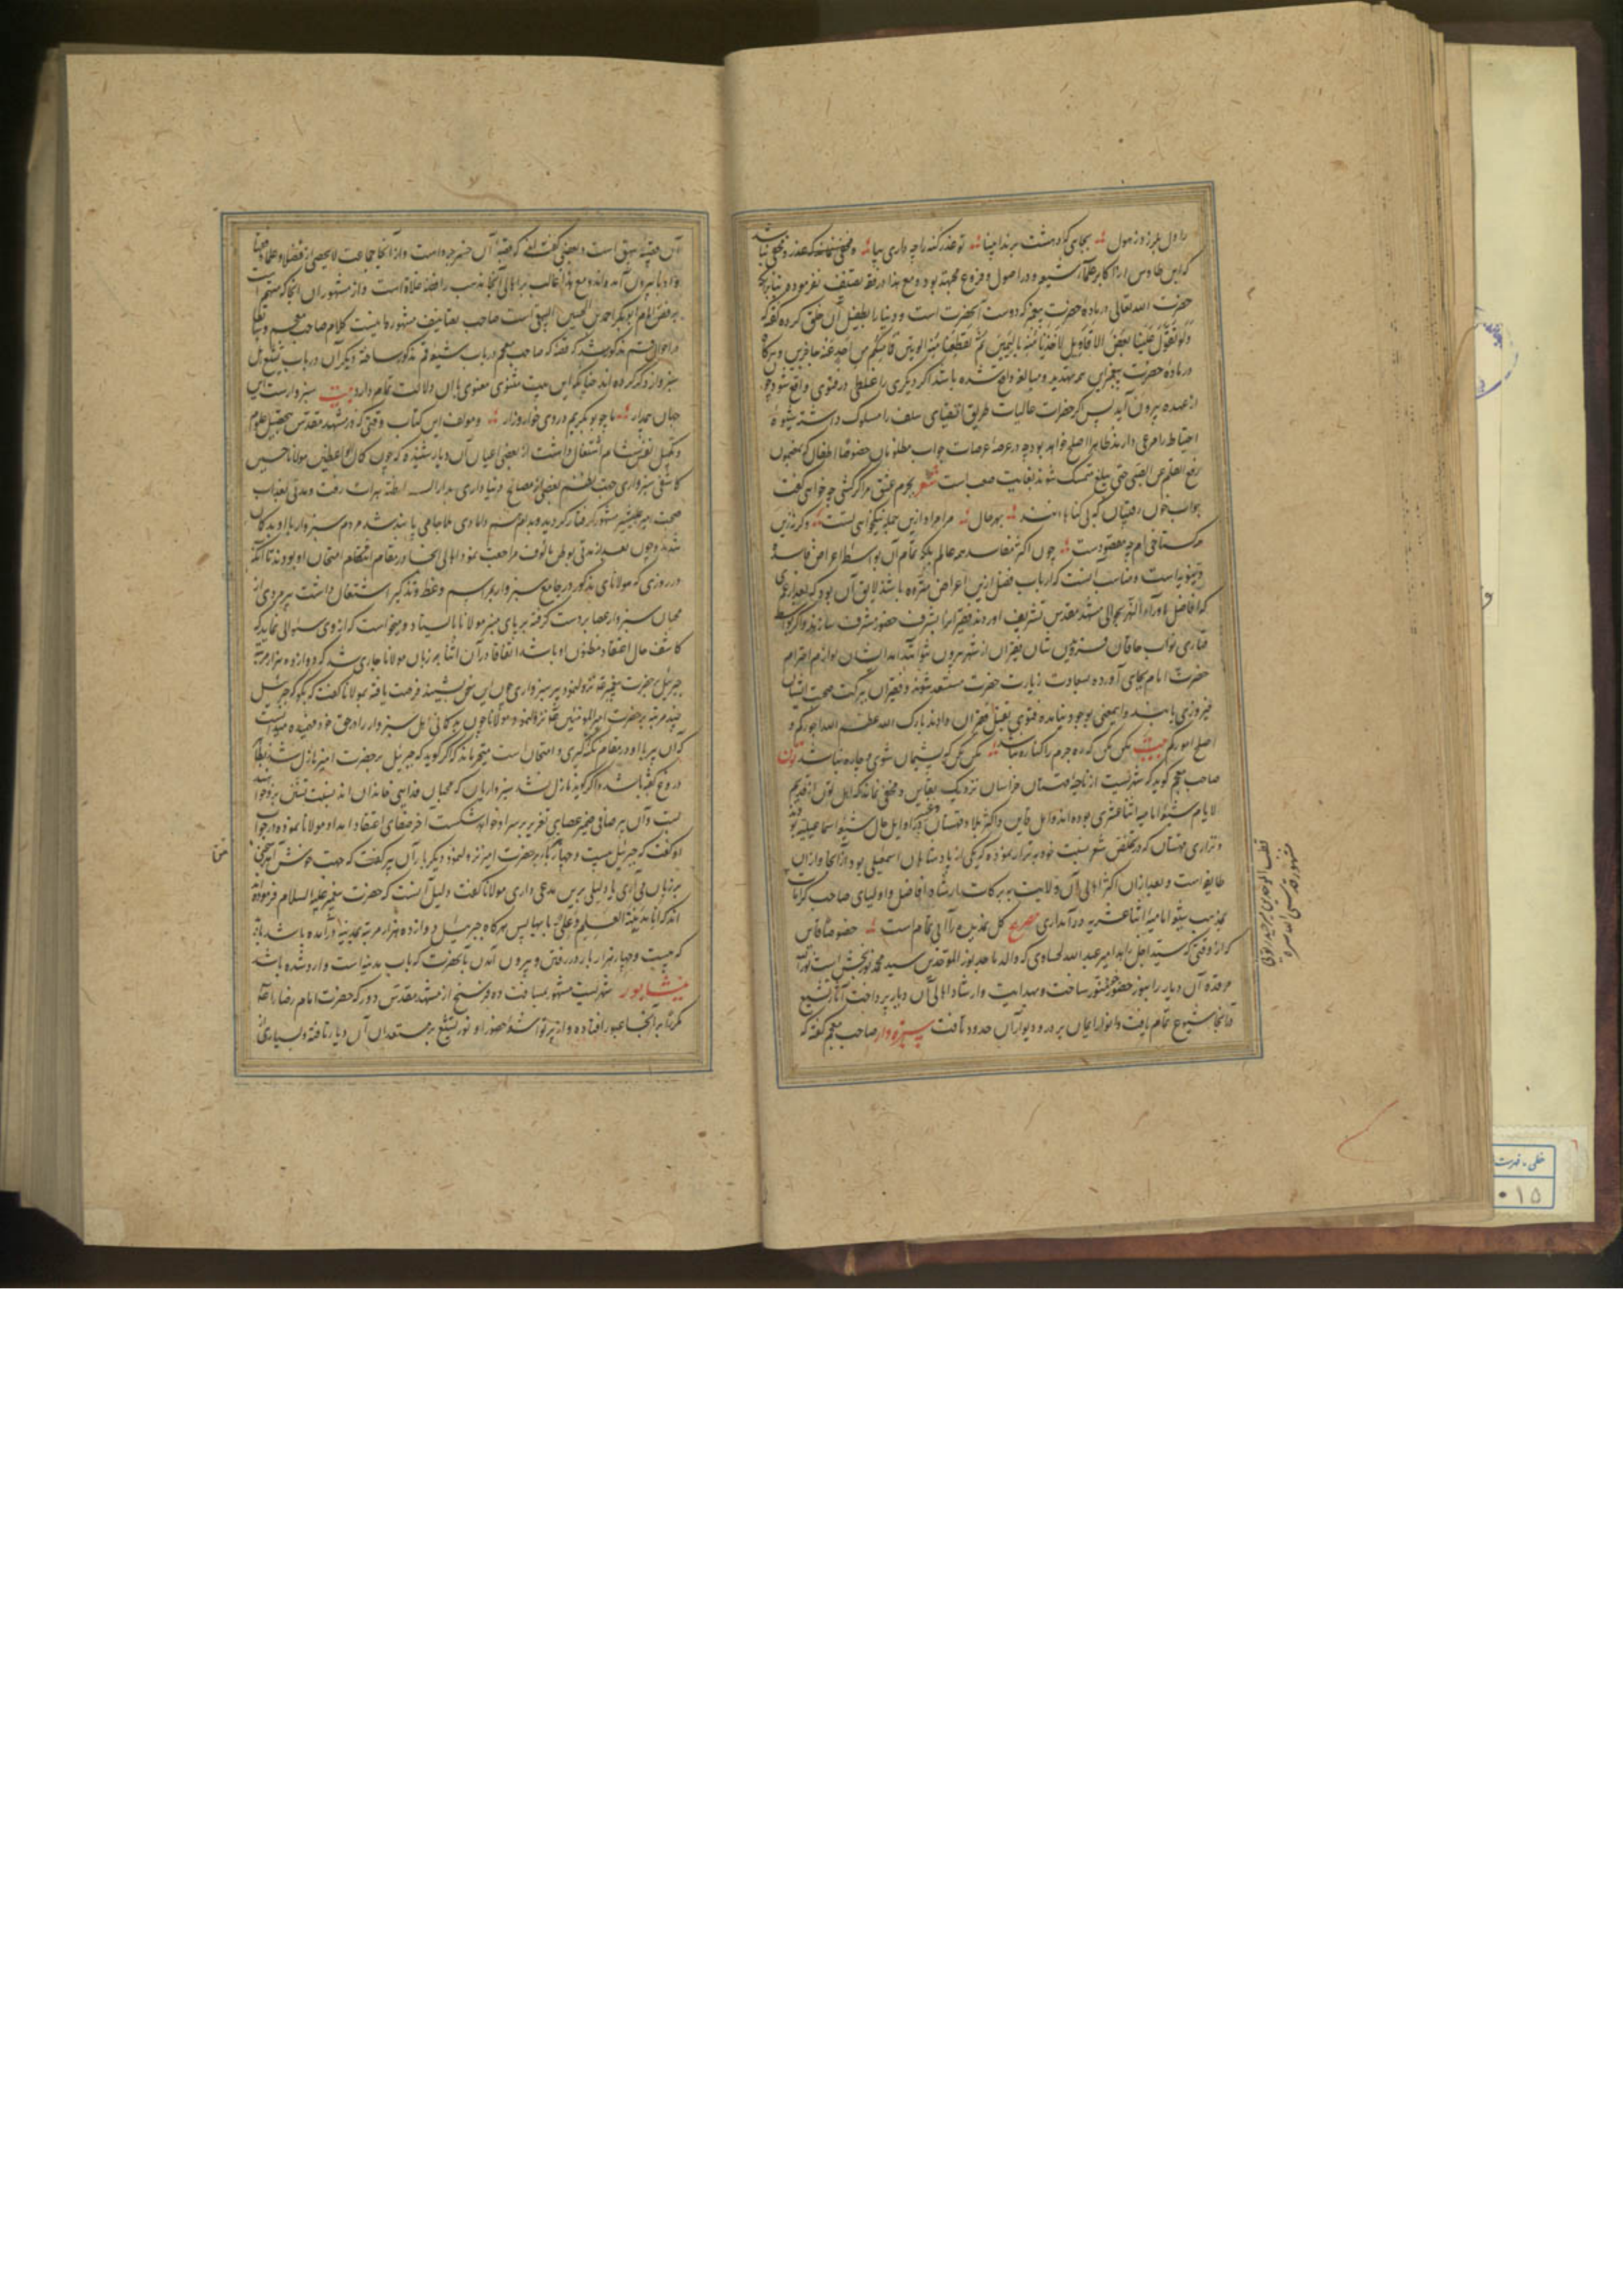 را دل بلرزد ز هول بجای که دهشت برند انبیا تو عذر گنه را چه داری بیا
که ابن طاوس از اکابر علمای شیعه و در اصول و فروع مجتهد بوده مع هذا در فقه تصنیف نفرموده
حضرت الله تعالی در ماده حضرت پیغمبر که دوست آنحضرت است و دنیا را بطفیل آن خلق کرده گفته که
ولو تقول علینا بعض الاقاویل لاخذنا منه بالیمین ثم لقطعنا منه الوتین فما منکم من احد عنه حاجزین و هرگاه
در ماده حضرت پیغمبر این همه تهدید و مبالغه واقع شده باشد اگر دیگری را غلطی در فتوی واقع شود
از عهده بیرون آید پس اگر حضرات عالیات طریق اقتضای سلف را مسلوک داشته شیوه
احتیاط را مرعی دارند ظاهرا اصلح خواهد بود چه در عرصه عرصات جواب مظلومان خصوصا اطفال که بمضمون
رفع القلم عن الصبی حتی یبلغ متمسک شوند بغایت صعب است شعر بجرم عشق مرا گر کشی چه خواهی گفت
جواب خون رفیقان که بی گناهانند بهرحال مرا مراد ازین جمله نیکخواهی تست وگرنه زین
گستاخی ام چه مقصودست چون اکثر مفاسد همه عالم بلکه تمام آن بواسطه اعراض فاسده
دنیویه است و مناسب آنست که ارباب فضل ازین اعراض منزه باشند لایق آن بود که
که افاضل ماوراء النهر بحوالی مشهد مقدس تشریف آوردند فقیر را بشرف حضور مشرف سازند و اگر بواسطه
نواب خاقان شان فقیران از شهر بیرون نتوانند آمد ایشان لوازم احترام
حضرت امام بجای آورده بسعادت زیارت حضرت مستعد شوند و فقیران ببرکت صحبت ایشان
فیروزی یابند و اینمعنی بوجود نیامده فتوی بقتل فقیران دادند بارک الله عظم الله اجورکم و
اصلح امورکم بیت مکن مکن که ره جرم را کناره نباشد مکن مکن که پشیمان شوی و چاره نباشد تون
صاحب معجم گوید که شهریست از ناحیه قهستان خراسان نزدیک بقاین و مخفی نماند که اهل تون از قدیم
الایام شیعه امامیه اثنا عشری بوده اند و اهل قاین و اکثر بلاد قهستان در اوایل حال شیعه اسماعیلیه بودند
و نزاری قهستان که در تخلص شعر نسبت خود به نزار نموده که یکی از پادشاهان اسمعیلی بود از آنجا و از آن
طایفه است و بعد از آن اکثر اهالی آن ولایت ببرکات ارشاد افاضل و اولیای صاحب کرامات
بمذهب شیعه امامیه اثنا عشریه در آمدند مصرع گل همین را آبی تمام است خصوصا قاین
که از وقتی که سید اجل زاهد امیر عبد الله لحساوی که والد ماجد نوز الموقدین سید محمد نوربخش است نور الله
مرقده آن دیار را بنور حضور خود منور ساخت و بهدایت و ارشاد اهالی آن دیار پرداخت آثار تشیع
در آنجا شیوع تمام یافت و انوار ایمان بر در و دیوار آن حدود تافت سبزوار صاحب معجم گفته که
قطب الموحدین میر حیدر تونی
مشهور قدس الله سره
آن قصبه بیهق است و بعضی گفته اند که قصبه آن خسروجرد است و از آنجا جماعت لایحصی از فضلا و علما و فقها
و ادبا بیرون آمده اند و مع هذا غالب بر اهالی آنجا مذهب رافضه غلاة است و از مشهوران آنجا که متهم است
برفض امام ابوبکر احمد بن الحسین البیهقی است صاحب تصانیف مشهوره اینست کلام صاحب معجم و
در احوال قم مذکور شد که قصه که صاحب معجم در باب شیعه قم مذکور ساخته دیگران در باب تشیع اهل
سبزوار ذکر کرده اند چنانکه این بیت مثنوی معنوی بان دلالت تمام دارد بیت سبزوارست این
جهان بیمدار ما چو بوبکریم در وی خوار و زار و مولف این کتاب وقتی که در مشهد مقدس بتحصیل علوم
و تکمیل نفس اشتغال داشت از بعضی اعیان آن دیار شنیده که چون کمال الواعظین مولانا حسین
کاشفی سبزواری جهت نظم بعضی از مصالح دنیا داری بدار السلطنه هرات رفت و مدتی
صحبت امیر علیشیر مشهور گرفتار گردید و بدام دامادی ملا جامی پابند شد مردم سبزوار باو بدگمان
شدند و چون بعد از مدتی بوطن مالوف مراجعت نمود اهالی آنجا در مقام امتحان او بودند تا آنکه
در روزی که مولانای مذکور در جامع سبزوار بمراسم وعظ و تذکیر اشتغال داشت پیرمردی از
محبان سبزوار عصا بردست گرفته بر پای منبر مولانا بایستاد و میخواست که ازوی سئوالی نماید که
کاشف حال اعتقاد مظنون او باشد اتفاقا در آن اثنا بر زبان مولانا جاری شد که دوازده هزار مرتبه
جبرئیل بر حضرت پیغمبر نزول نمود پیر سبزواری چون این سخن بشنید فرصت یافته بمولانا گفت که بگو که جبرئیل
چند مرتبه بر حضرت امیرالمومنین علی نزول نمود مولانا چون بدگمانی اهل سبزوار را در حق خود فهمیده میدانست
که آن پیر با او در مقام نکته گیری و امتحان است متحیر ماند که اگر گوید که جبرئیل بر حضرت امیر نازل شد بظاهر
دروغ گفته باشد و اگر گوید نازل نشد سبزواریان که محبان فدایی خاندان اند نسبت تسنن برو خواهند
بست و آن پیر صافی ضمیر عصایی تغریر بر سر او خواهد شکست آخر صفای اعتقاد امداد مولانا نموده در جواب
او گفت که جبرئیل بیست و چهار هزار بار بر حضرت امیر نزول نمود دیگر بار آن پیر گفت که جهت خوش آمد سخنی
بر زبان می آری یا دلیلی برین مدعی داری مولانا گفت دلیل آنست که حضرت پیغمبر علیه السلام فرموده
اند که انا مدینة العلم و علی بابها پس هرگاه جبرئیل دوازده هزار مرتبه بمدینه در آمده باشد باید
که بیست و چهار هزار بار در رفتن و بیرون آمدن بآنحضرت که باب مدینه است وارد شده باشد
نیشابور شهریست مشهور بمسافت ده فرسنخ از مشهد مقدس دور که حضرت امام رضا را صلی
مکررا بر آنجا عبور افتاده و از پرتو اشعه حضور او نور تشیع بر مستعدان آن دیار تافته و بسیاری از
خطی - فهرست
۰۱۵